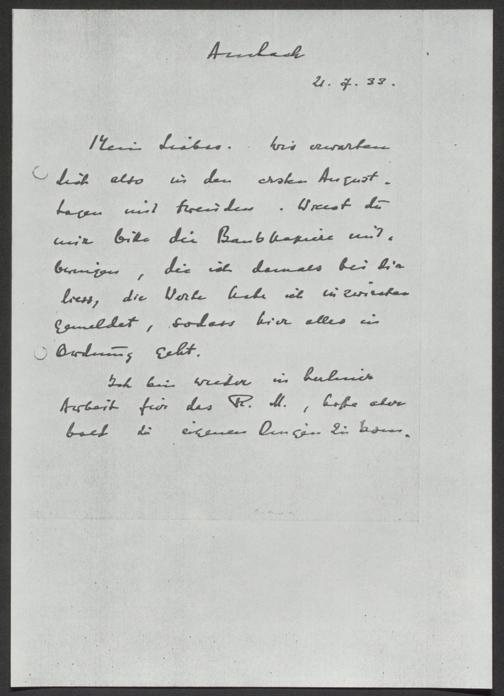 21. 7. 33.
Mein Liebes. Wir erwarten
Dich also in den ersten August-
tagen mit Freuden. Wirst du
mir bitte die Bankpapiere mit-
bringen, die ich damals bei Dir
liess, die Werte habe ich inzwischen
gemeldet, sodass hier alles in
Ordnung geht.
Ich bin wieder in
Arbeit für das R. M., hoffe aber
bald zu eigenen Dingen zu kom.